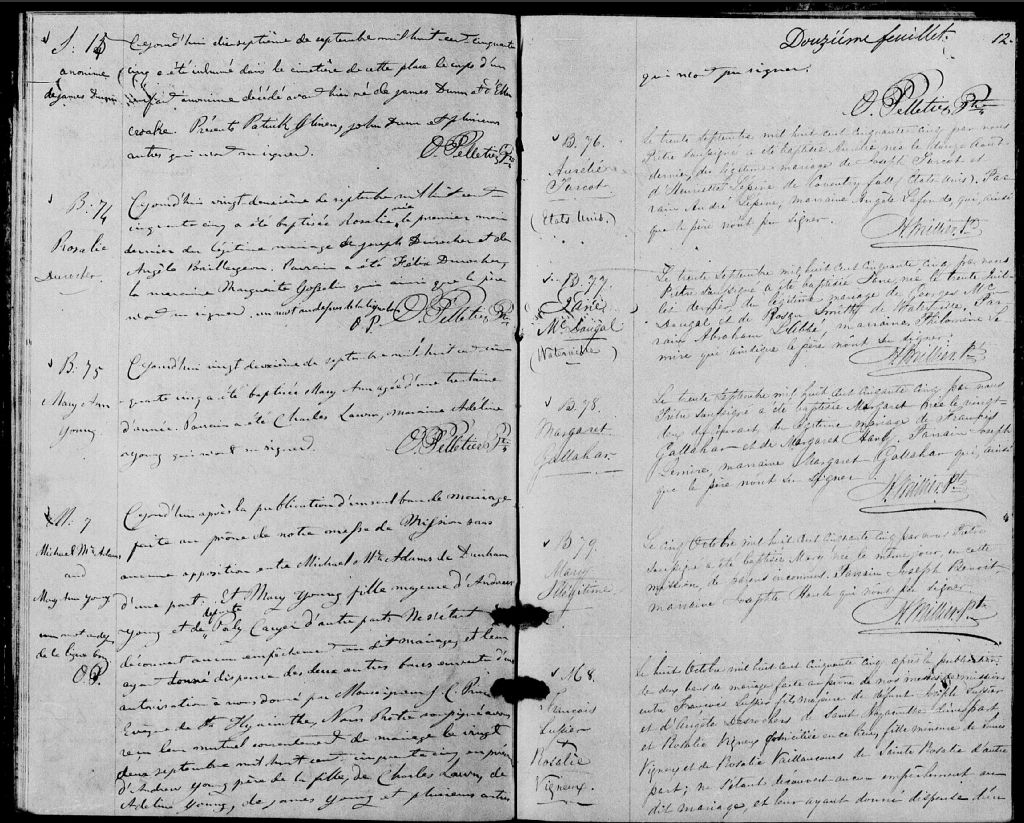 S. 15
anonime
de james Dunn
Cejourd'hui dix septième de septembre mil huit cent cinquante
cinq a été inhumé dans le cimetière de cette place le corps d'un
enfant anonime décédé avant hier né de james Dunn et d'Ellen
Présents Patrick john Dunn et plusieurs
autres qui n'ont su signer.
O. Pelletier, Ptre
B. 74
Rosalie
Durocher
Cejourd'hui vingt deuxième de septembre mil huit cent
cinquante cinq a été baptisée Rosalie, le premier mai
dernier du légitime mariage de joseph Durocher et de
Angèle Baillargeon. Parrain a été Félix Durocher,
la marraine Marguerite Gosselin qui ainsi que le père
n'ont su signer. un mot au dessus de la ligne bon
O. P. O. Pelletier, Ptre
B. 75
Mary Ann
Young
Cejourd'hui vingt deuxième de septembre mil huit cent cin
quante cinq a été baptisée Mary Ann agée d'une trentaine
d'année. Parrain a été Charles marraine Adéline
Young qui n'ont su signer.
O. Pelletier, Ptre
M. 7
Michael McAdams
and
Mary Ann Young
un mot au dessus
de la ligne bon
O. P.
Cejourd'hui après la publication d'un seul ban de mariage
faite au prône de notre messe de Mission sans
aucune opposition entre Michael McAdams de Dunham
d'une part; Et Mary Young fille majeure d'Andrew
Young et de Poly d'autre part; Ne s'étant
découvert aucun empêchement au dit mariage, et leur
ayant donné dispense des deux autres bans en vertu d'une
autorisation à nous donné par Monseigneur J. C. Prince
Evêque de St. Hyacinthe, Nous Prêtre soussigné avons
reçu leur mutuel consentement de mariage le vingt
deux septembre mil huit cent cinquante cinq en présence
d'Andrew Young père de la fille, de Charles de
Adeline Young, de james Young et plusieurs autres
Douzième feuillet. 12.
qui n'ont pu signer.
O. Pelletier, Ptre
B. 76.
Aurélie
Turcot
(Etats Unis.)
Le trente Septembre mil huit cent cinquante cinq par nous
Prêtre soussigné a été baptisé Aurélie née le douze Août
dernier, du légitime mariage de Joseph Turcot et
d'Henriette Lépine de Coventry falls (Etats Unis). Par
rain André Lépine, marraine Angèle qui, ainsi
que le père n'ont pu signer.
B. 77.
Jane
McDougal
(Waterville)
Le trente Septembre mil huit cent cinquante cinq par nous
Prêtre soussigné a été baptisée Jane, née le trente Juil
let dernier du légitime mariage de Georges Mc
Dougal et de Rosan Smith de Waterville. Par
rain Abraham Labbé, marraine, Philomène
qui ainsi que le père n'ont su signer.
B. 78.
Margaret
Gallahar
Le trente Septembre mil huit cent cinquante cinq par nous
Prêtre soussigné a été baptisée Margaret née le vingt
deux du courant, du légitime mariage de François
Gallahar et de Margaret Parrain Joseph
Lemire, marraine Margaret Gallahar qui, ainsi
que le père n'ont su signer.
B 79.
Mary
Illégitime
Le cinq Octobre mil huit cent cinquante cinq par nous Prêtre
soussigné a été baptisée Mary née le même jour, en cette
mission, de parens inconnus. Parrain Joseph Benoit
marraine Josephte qui n'ont pu signer.
M 8.
François
Lussier
&
Rosalie
Vigneux.
Le huit Octobre mil huit cent cinquante cinq après la publication
de deux bans de mariage faite au prône de nos messes de mission
entre François Lussier fils majeur de défunt Joseph Lussier
et d'Angèle Desrochers de Saint Hyacinthe d'une part;
et Rosalie Vigneux domiciliée en ce lieu, fille mineure de Louis
Vigneux et de Rosalie Vaillancour de Sainte Rosalie d'autre
part; ne s'étant découvert aucun empêchement au
dit mariage, et leur ayant donné dispense d'un